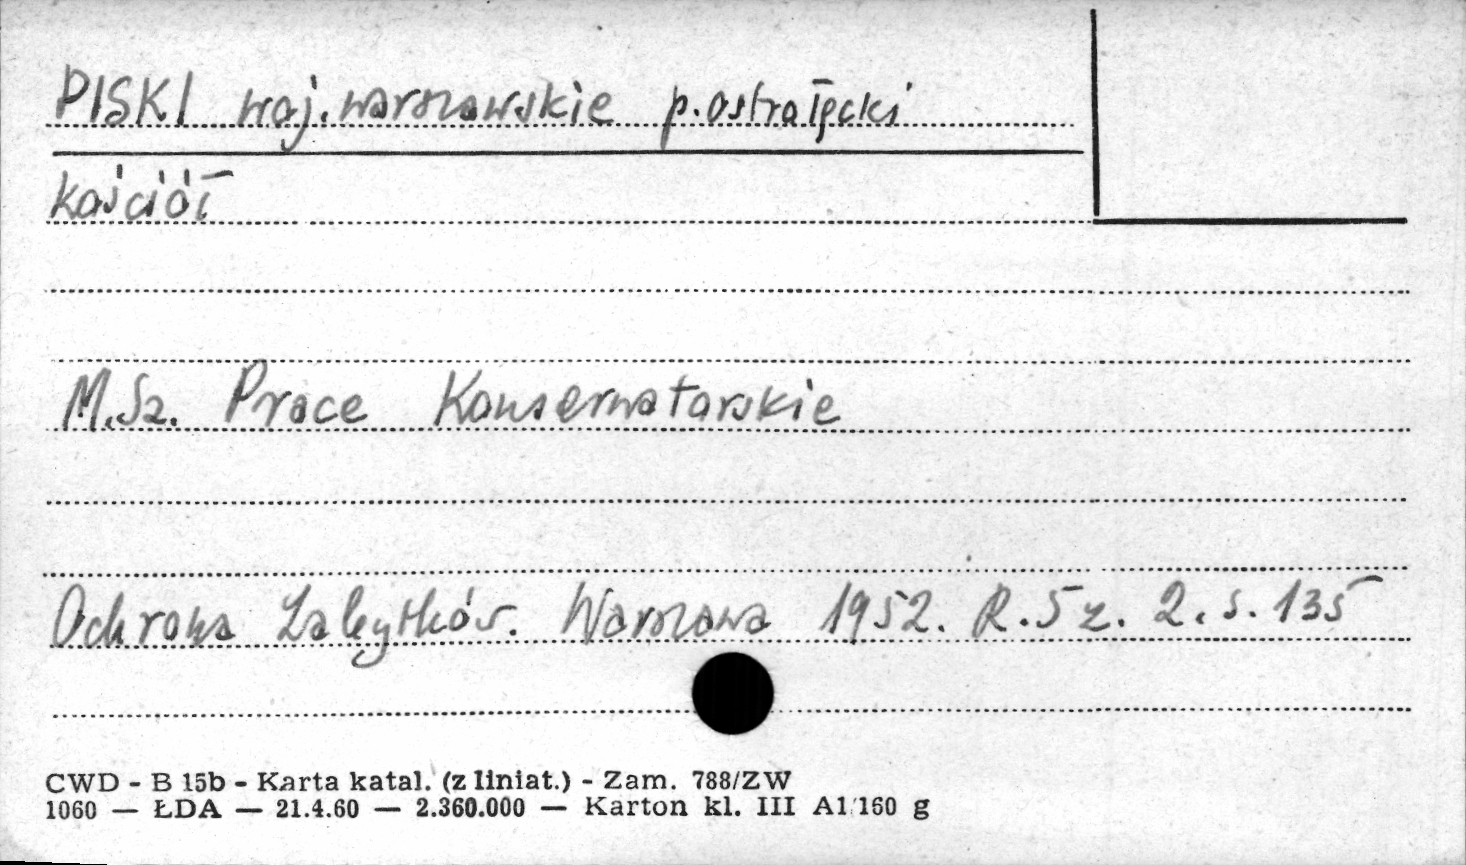 PISKI woj. warszawskie p. ostrołęcki
kościół
M.Sz. Prace Konserwatorskie
Ochrona Zabytków. Warszawa 1952. R.5 z. 2. s. 135
CWD - B 15b - Karta katal. (z liniat.) - Zam. 788/ZW
1060 — ŁDA — 21.4.60 — 2.360.000 — Karton kl. III A1/160 g